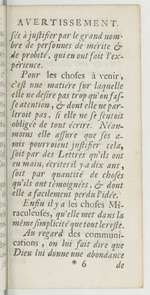 AVERTISSEMENT.
sée à justifier par le grand nom-
bre de personnes de mérite &
de probité, qui en ont fait l'ex-
périence.
Pour les choses à venir,
c'est une matiére sur laquelle
elle ne desire pas trop qu'on fas-
se atention, & dont elle ne par-
leroit pas, si elle ne se sentoit
obligée de tout écrire. Néan-
moins elle assure que ses a-
mis pourroient justifier cela,
soit par des Lettres qu'ils ont
en main, écrites il y a dix ans,
soit par quantité de choses
qu'ils ont témoignées, & dont
elle a facilement perdu l'idée.
Enfin il y a les choses Mi-
raculeuses, qu'elle met dans la
même simplicité que tout le reste.
Au regard des communi-
cations, on lui fait dire que
Dieu lui donne une abondance
* 6 de